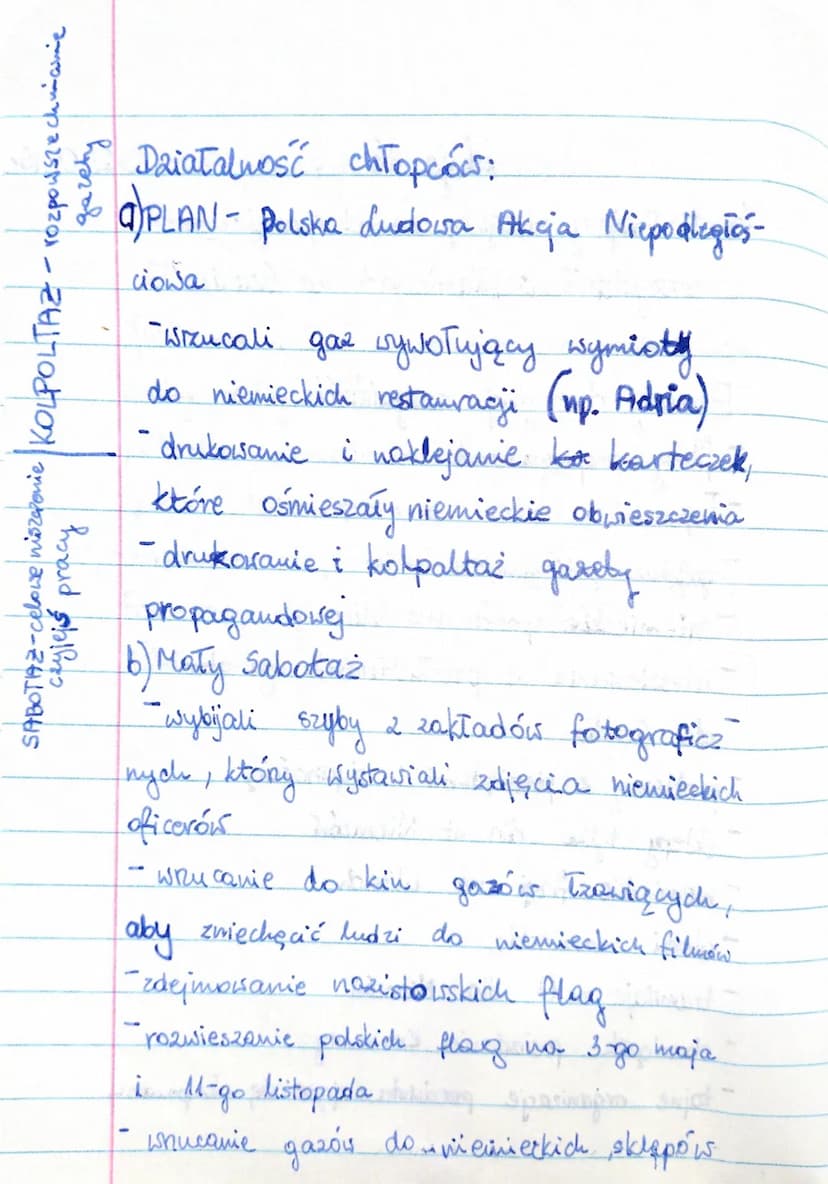 Działalność chłopców:
a) PLAN - Polska Ludowa Akcja Niepodległoś-
ciowa
- wrzucali gaz wywołujący wymioty
do niemieckich restauracji (np. Adria)
- drukowanie i naklejanie karteczek,
które ośmieszały niemieckie obwieszczenia
- drukowanie i kolpaltaż gazety
propagandowej
b) Mały Sabotaż
- wybijali szyby z zakładów fotograficz-
nych, który wystawiali zdjęcia niemieckich
oficerów
- wrzucanie do kin gazów łzawiących,
aby zniechęcić ludzi do niemieckich filmów
- zdejmowanie nazistowskich flag
- rozwieszanie polskich flag na 3-go maja
i 11-go listopada
- wrzucanie gazów do niemieckich sklepów
SABOTAŻ - celowe niszczenie
czyjejś pracy
KOLPOLTAŻ - rozpowszechnianie
gazety